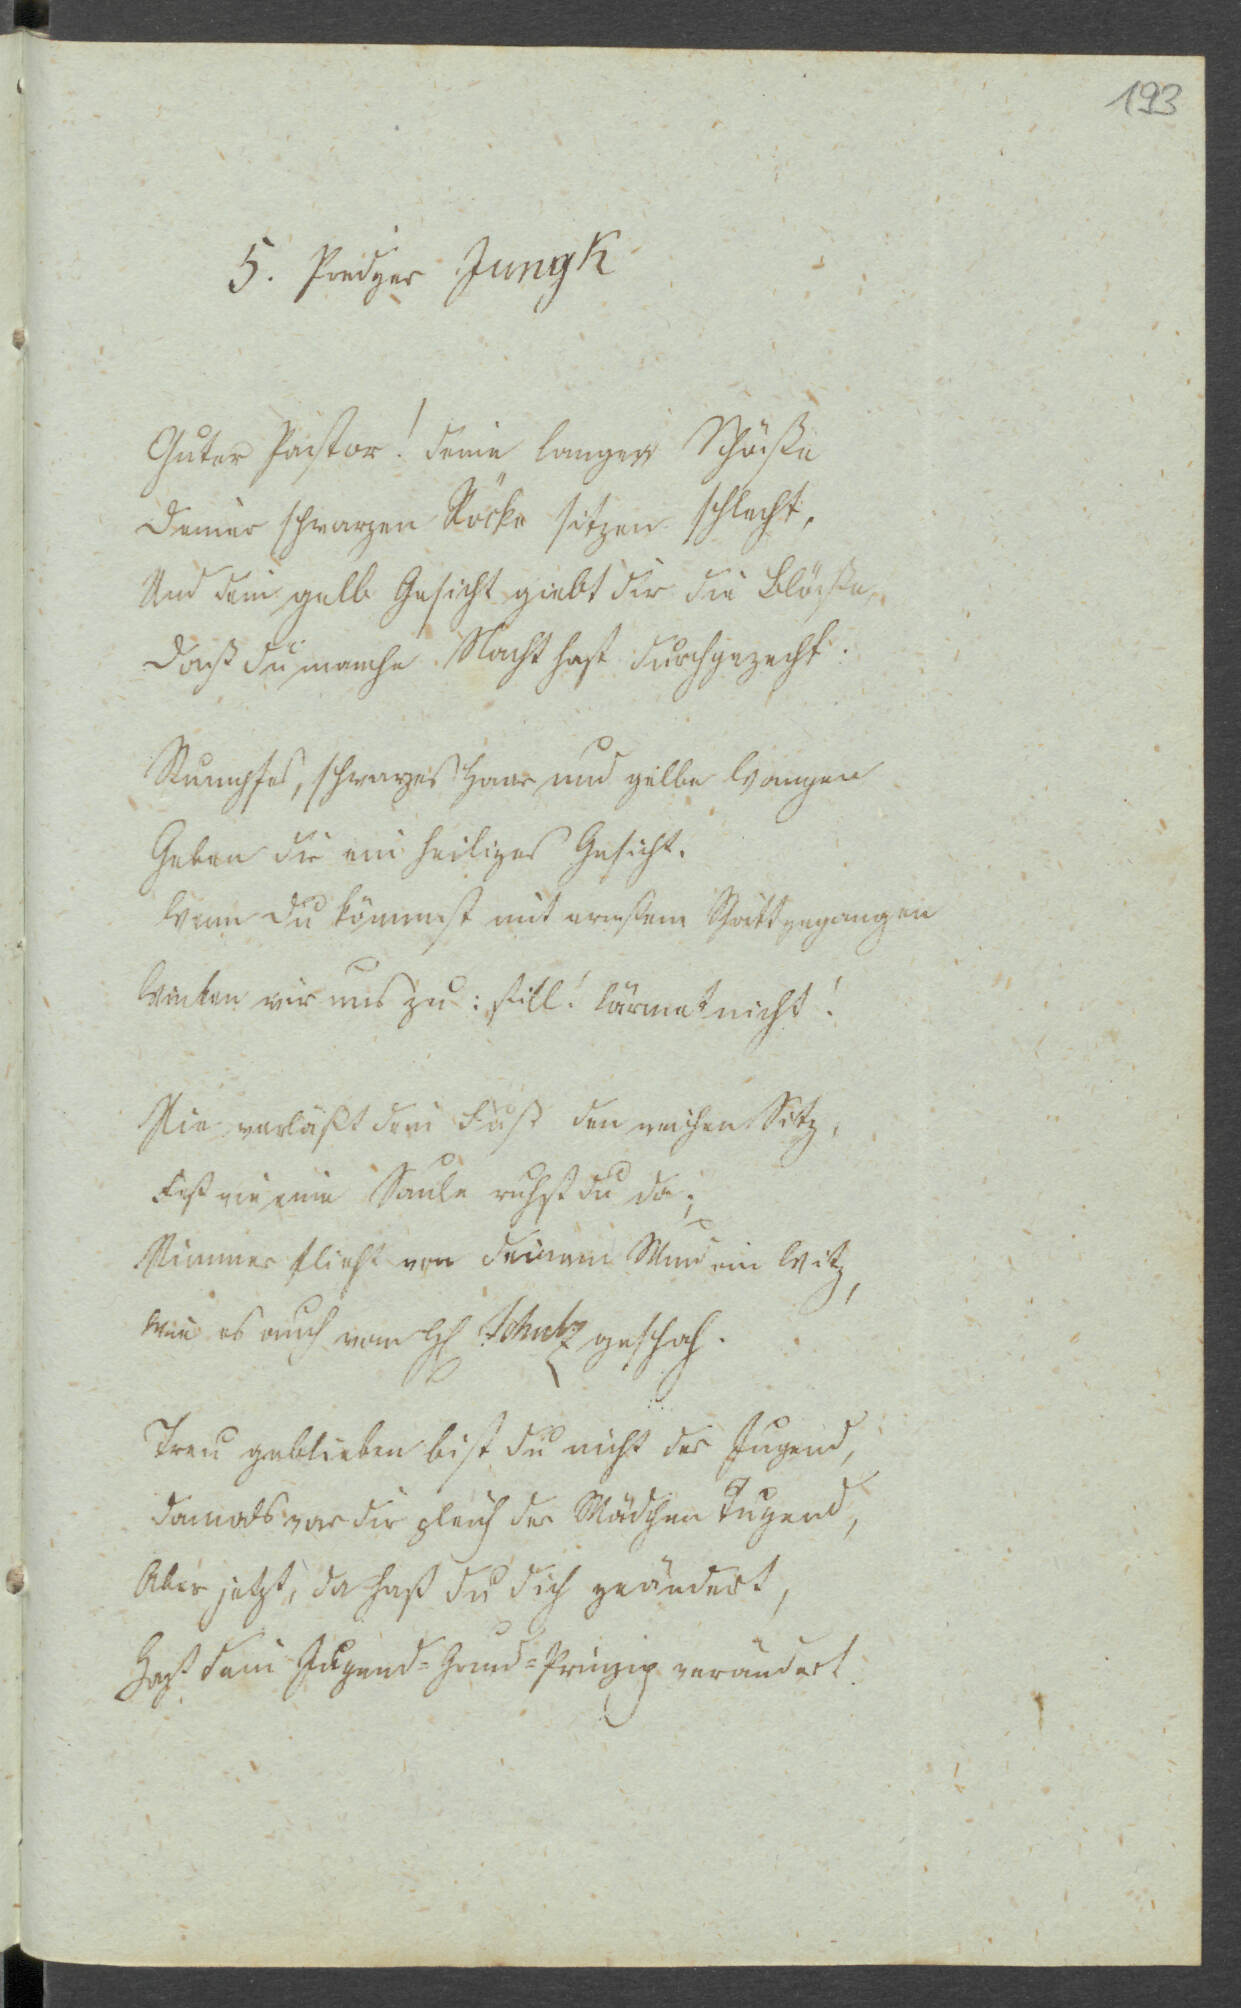 193
5. Predger Jungk
Guter Pastor! deine langen Schöße
Deiner schwarzen Röcke sitzen schlecht,
Und dein gelb Gesicht giebt dir die Blöße,
Daß du manche Nacht hast durchgezecht.
Stumpfes, schwarzes Haar und gelbe Wangen
Geben dir ein heiliges Gesicht.
Wenn du kömmst mit ernstem Schritt gegangen
Winken wir uns zu: still! lärmet nicht!
Nie verläßt dein Fuß den weichen Sitz,
Fest wie eine Säule ruhst du da;
Nimmer flieht von deinem Mund ein Witz,
Wie es auch vom H Schulz geschah.
Treu geblieben bist du nicht der Jugend,
Damals war dir gleich der Mädchen Tugend,
Aber jetzt, da hast du dich geändert,
Hast dein Jugend=Grund=Prinzip verändert.